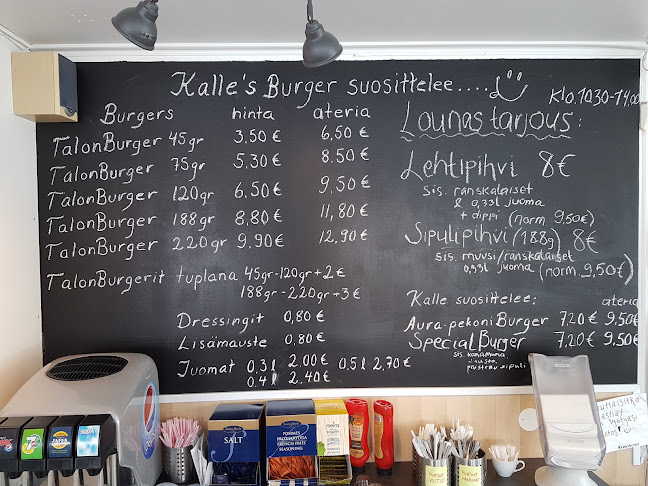 Kalle's Burger suosittelee....
Klo.1030-14.00
Burgers hinta ateria
TalonBurger 45gr 3.50€ 6,50€
TalonBurger 75gr 5.30€ 8.50€
TalonBurger 120gr 6.50€ 9,50€
TalonBurger 188gr 8,80€ 11,80€
TalonBurger 220gr 9.90€ 12,90€
TalonBurgerit tuplana 45gr-120gr+2€
188gr-220gr+3€
Dressingit 0,80€
Lisämauste 0,80€
Juomat 0,3l 2,00€ 0,5l 2,70€
0.4l 2.40€
Lounastarjous:
Lehtipihvi 8€
sis. ranskalaiset
& 0,33l juoma
+ dippi (norm 9,50€)
Sipulipihvi (188g) 8€
sis. muusi/ranskalaiset
0,33l juoma (norm 9,50€)
Kalle suosittelee: ateria
Aura-pekoniBurger 7,20€ 9.50€
SpecialBurger 7,20€ 9.50€
sis. kananmuna,
juusto,
sipuli
pepsi
SALT
FRENCH FRIES
SEASONING